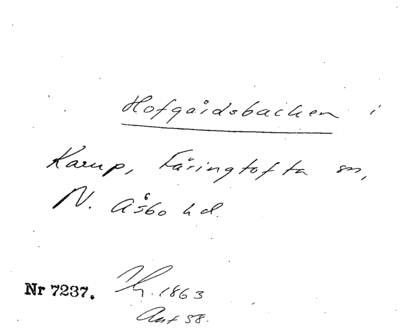 Hofgårdsbacken i
Karup, Färingtofta sn,
N. Åsbo hd.
Nr 7237.
1863
Ant 58.